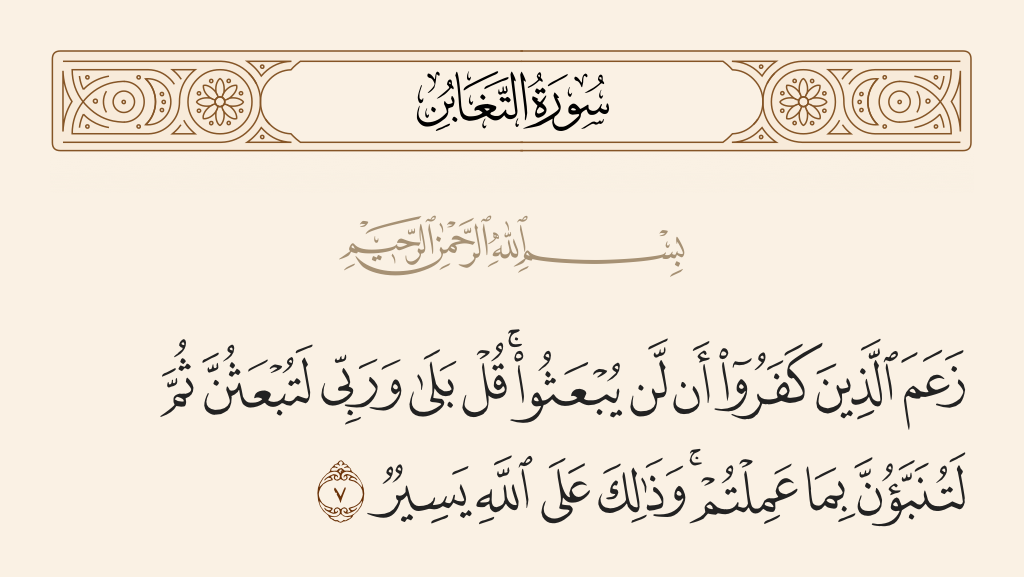 سُورَةُ التَّغَابُنِ
بِسْمِ ٱللَّهِ ٱلرَّحْمَٰنِ ٱلرَّحِيمِ
زَعَمَ ٱلَّذِينَ كَفَرُوٓا۟ أَن لَّن يُبْعَثُوا۟ ۚ قُلْ بَلَىٰ وَرَبِّى لَتُبْعَثُنَّ ثُمَّ
لَتُنَبَّؤُنَّ بِمَا عَمِلْتُمْ ۚ وَذَٰلِكَ عَلَى ٱللَّهِ يَسِيرٌ ٧